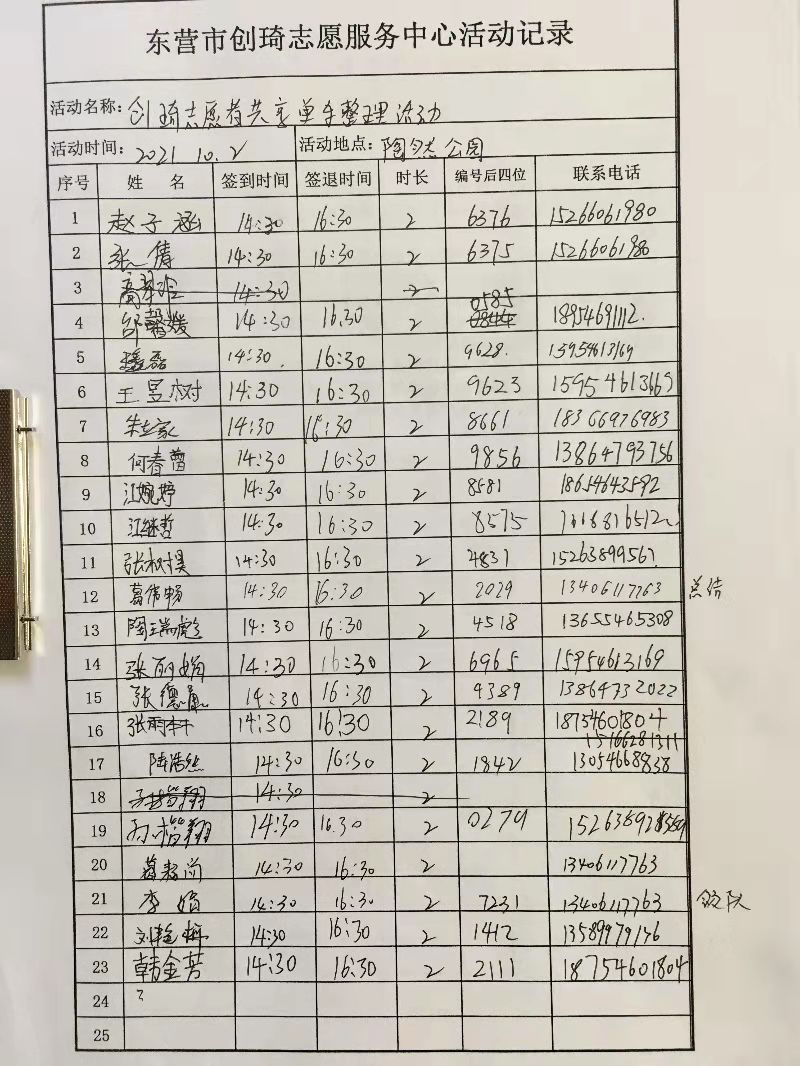 东营市创琦志愿服务中心活动记录
活动名称：创琦志愿者共享单车整理活动
活动时间：2021 10.2 活动地点：陶然公园
序号 姓 名 签到时间 签退时间 时长 编号后四位 联系电话
1 赵子涵 14:30 16:30 2 6376 15266061980
2 张倩 14:30 16:30 2 6375 15266061980
3 14:30 2
0585
4 邰馨媛 14:30 16:30 2 18954691112.
5 14:30. 16:30 2 9628. 15954613169
6 王昱树 14:30 16:30 2 9623 15954613669
7 朱立家 14:30 16:30 2 8661 18366976983
8 何春蕾 14:30 16:30 2 9856 13864793756
9 江婉婷 14:30 16:30 2 8581 18654643592
10 江继哲 14:30 16:30 2 8575
11 张树昊 14:30 16:30 2 4837 15263899567
12 葛伟畅 14:30 16:30 2 2029 13406117763 总结
13 14:30 16:30 2 4518 13655465308
14 张丽娟 14:30 16:30 2 6965 15954613169
15 张德 14:30 16:30 2 9389 13864732022
16 张雨轩 14:30 16:30 2 2189 18754601804
15166281311
17 陆浩然 14:30 16:30 2 1842 13054668838
18 14:30 2
19 翔 14:30 16:30 2 0279
20 14:30 16:30 2 13406117763
21 李娟 14:30 16:30 2 7231 13406117763 领队
22 刘艳梅 14:30 16:30 2 1412 13589979176
23 韩金芳 14:30 16:30 2 2111 18754601804
24
25